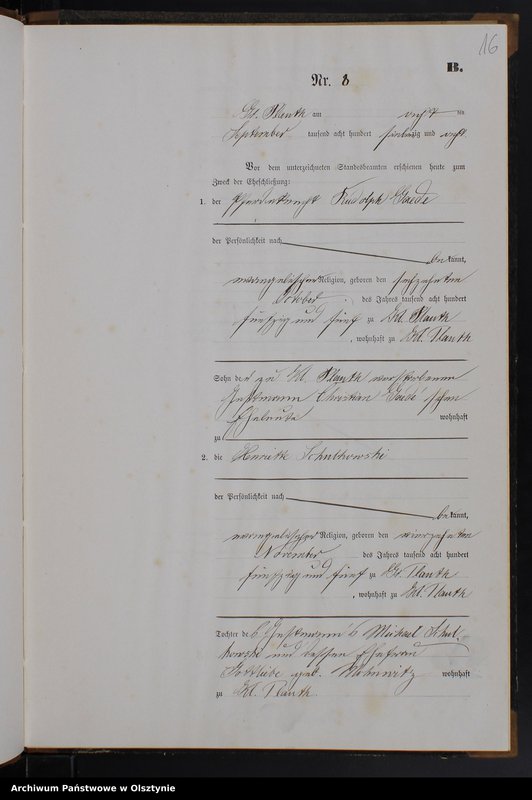 16
B.
Nr. 8
Gr. Plauth am acht ten
September tausend acht hundert siebenzig und acht.
Vor dem unterzeichneten Standesbeamten erschienen heute zum
Zweck der Eheschließung:
1. der Pferdeknecht Rudolph Goede
der Persönlichkeit nach
bekannt,
evangelischer Religion, geboren den sechzehnten
October des Jahres tausend acht hundert
fünfzig und fünf zu Kl. Plauth
, wohnhaft zu Kl. Plauth
Sohn der zu Kl. Plauth verstorbenen
Instmann Christian Goede'schen
Eheleute wohnhaft
zu
2. die Henriette Schulkowski
der Persönlichkeit nach
bekannt,
evangelischer Religion, geboren den vierzehnten
November des Jahres tausend acht hundert
fünfzig und fünf zu Gr. Plauth
, wohnhaft zu Kl. Plauth
Tochter des Instmann's Michael Schul-
kowski und dessen Ehefrau
Gottliebe geb. wohnhaft
zu Kl. Plauth.
Archiwum Państwowe w Olsztynie